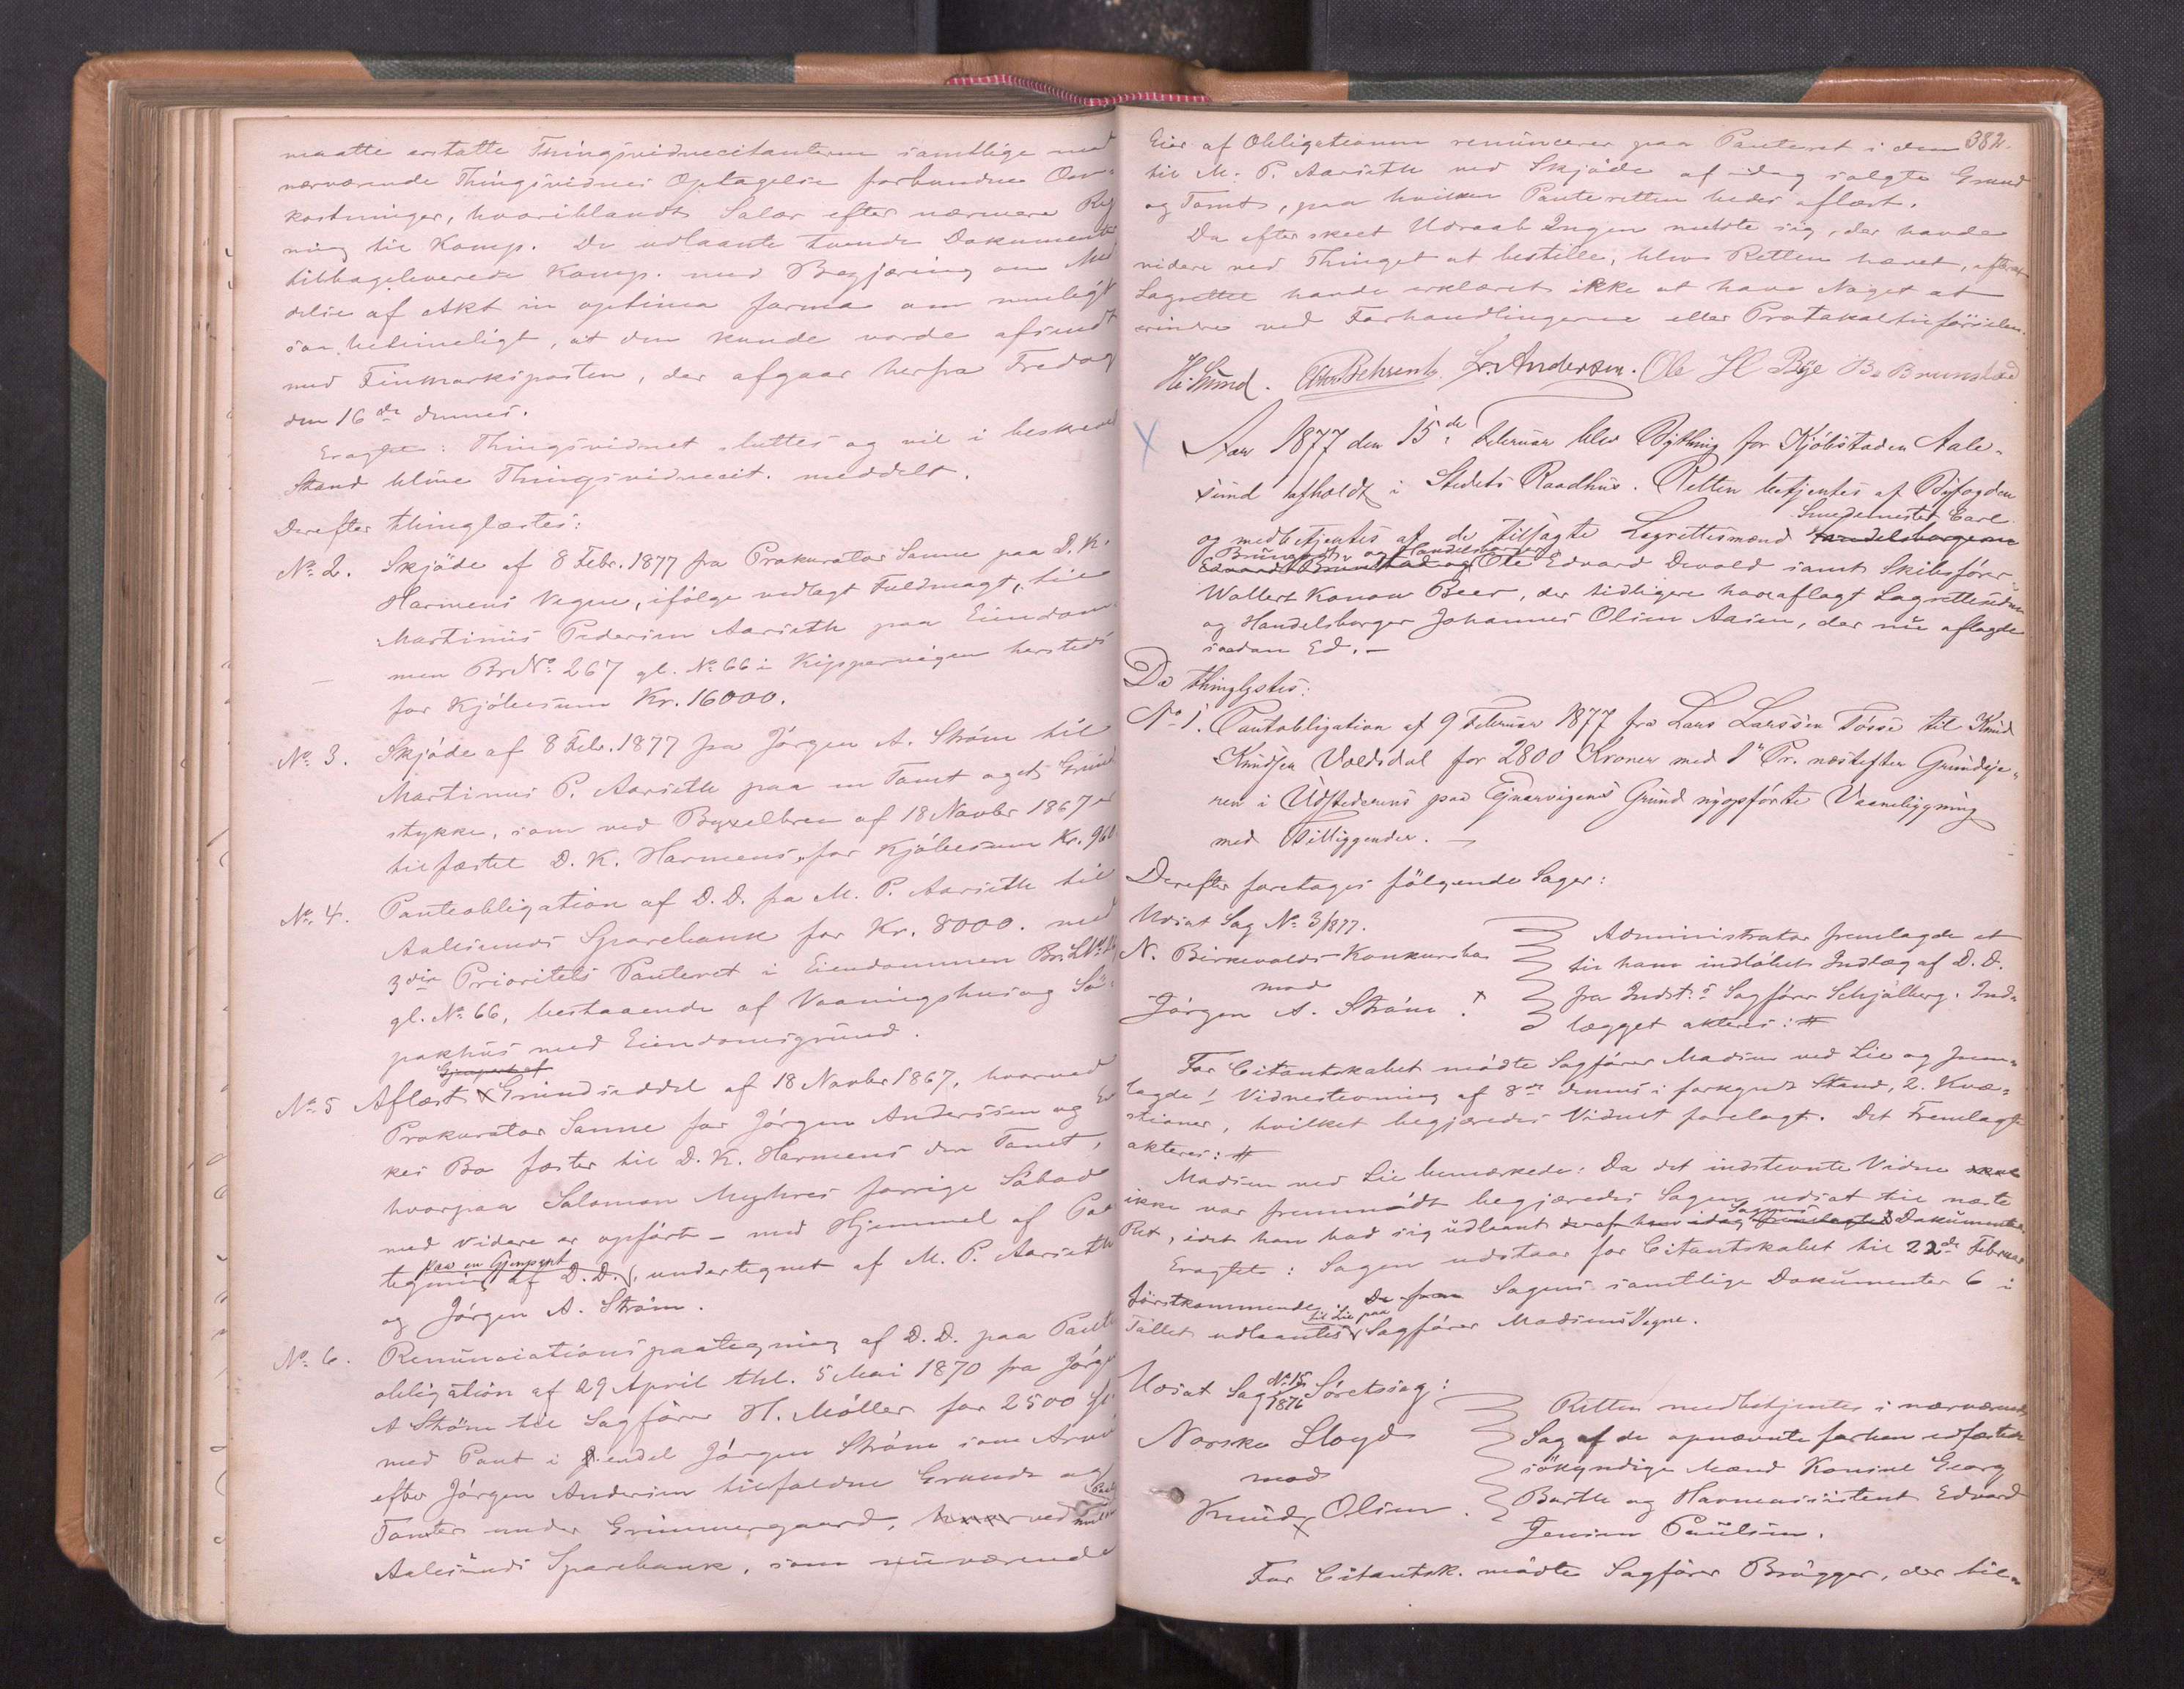 maatte erstatte Thingsvidnecitanterne samtlige med
nærværende Thingsvidnes Optagelse forbundne Om-
kostninger, hvoriblandt Salær efter nærmere Reg
ning til Komp. De udlaante tvende Dokumenter
tilbageleverede Komp. med Begjæring om Med
delse af Akt in optima forma om muligt
saa betimeligt, at den kunde vorde afsendt
med Finmarksposten, der afgaar herfra Fredag
den 16de dennes.
Eragtet: Thingsvidnet sluttes og vil i beskreven
Stand blive Thingsvidnecit. meddelt.
Derefter thinglæstes:
No 2. Skjöde af 8 Febr. 1877 fra Prokurator Sanne paa D. K.
Harmens Vegne, ifölge vedlagt Fuldmagt, til
Martinus Pedersen Aarseth paa Eiendom
men BrNo 267 gl. No 66 i Kippervigen hersteds
for Kjöbesum Kr. 16000.
No 3. Skjöde af 8 Febr. 1877 fra Jörgen A. Ström til
Martinus P. Aarseth paa en Tomt og et Grund
stykke, som ved Bygselbrev af 18 Novbr 1867 er
tilfæstet D. K. Harmens, for Kjöbesum Kr. 960.
No 4. Panteobligation af D. D. fra M. P. Aarseth til
Aalesunds Sparebank for Kr. 8000. med
3die Prioritets Panteret i Eiendommen Br.
gl. No 66, bestaaende af Vaaningshus og Sö-
pakhus med Eiendomsgrund.
Gjenpart af
No 5 Aflæst Grundseddel af 18 Novbr 1867, hvorved
Prokurator Sanne for Jörgen Anderssen og En
kes Bo fæster til D. K. Harmens den Tomt,
hvorpaa Salomon forrige Söbod
med Videre er opfört – med Hjemmel af Paa
paa en Gjenpart
tegning af D. D., undertegnet af M. P. Aarseth
og Jörgen A. Ström.
No 6. Renunciationspaategning af D. D. paa Pante
obligation af 29 April thl. 5 Mai 1870 fra Jörgen
A Ström til Sagförer H. Möller for 2500
med Pant i endel Jörgen Ström som Arv
efter Jörgen Andersen tilfaldne Grunde og
Tomter under Grimmergaard, ved
Aalesunds Sparebank, som nuværende
382.
Eier af Obligationen renuncerer paa Panteret i den
til M. P. Aarseth ved Skjöde af idag solgte Grund
og Tomt, paa hvilken Panteretten hedes aflæst.
Da efter skeet Udraab Ingen meldte sig, der havde
videre ved Thinget at bestille, blev Retten hævet, efterat
Lagrettet havde erklæret ikke at have Noget at
erindre ved Forhandlingerne eller Protokoltilförselen.
L. Andersen. Ole H Bye B. Brunstad
Aar 1877 den 15de Februar blev Bything for Kjöbstaden Aale-
sund afholdt i Stedets Raadhus. Retten betjentes af Byfogden
Smedemester Carl
og medbetjentes af de tilsagte Lagrettesmænd Handelsborgerne
og Handelsborger
Edvardt Brunstad og Ole Edvard Devold samt Skibsförer
Wollert Konow Beer, der tidligere have aflagt Lagretteseden
og Handelsborger Johannes Olsen Aasen, der nu aflagde
saadan Ed. –
Da thinglystes:
No 1. Pantobligation af 9 Februar 1877 fra Lars Larssen Tösse til Knud
Knudsen Voldsdal for 2800 Kroner med 1' Pr. næstefter Grundeje-
ren i Udstederens paa Grund nyopförte Vaanebygning
med Tilliggender. –
Derefter foretages fölgende Sager:
Udsat Sag No 3/1877.
N. Birkevolds Konkursbo
mod
Jörgen A. Ström.
Administrator fremlagde et
til ham indlöbet Indlæg af D. D.
fra Indst.s Sagförer Schjölberg. Ind-
lægget akteres: #
For Citantskabet mödte Sagförer Madsen ved Lie og frem-
lagde 1 Vidnestevning af 8de dennes i forkyndt Stand, 2. Kvæ-
stioner, hvilket begjæredes Vidnet forelagt. Det Fremlagte
akteres: #
Madsen ved Lie bemærkede: Da det indstevnte Vidne
ikke var fremmödt begjæredes Sagen udsat til næste
Sagens
Ret, idet han bad sig udlaant deraf han idag fremlagte Dokumenter.
Eragtet: Sagen udstaar for Citantskabet til 22de Februar
förstkommende. De fra Sagens samtlige Dokumenter 6 i
til Lie paa
Tallet udlaantes Sagförer Madsens Vegne.
Udsat Sag No 15/1876 Söretssag:
Norske Lloyd
mod
Knud Olsen.
Retten medbetjentes i nærværende
Sag af de opnævnte forhen edfæstede
sökyndige Mænd Konsul Georg
Barth og Havneassistent Edvard
Jensen Paulsen.
For Citantsk. mödte Sagförer Brögger, der til-